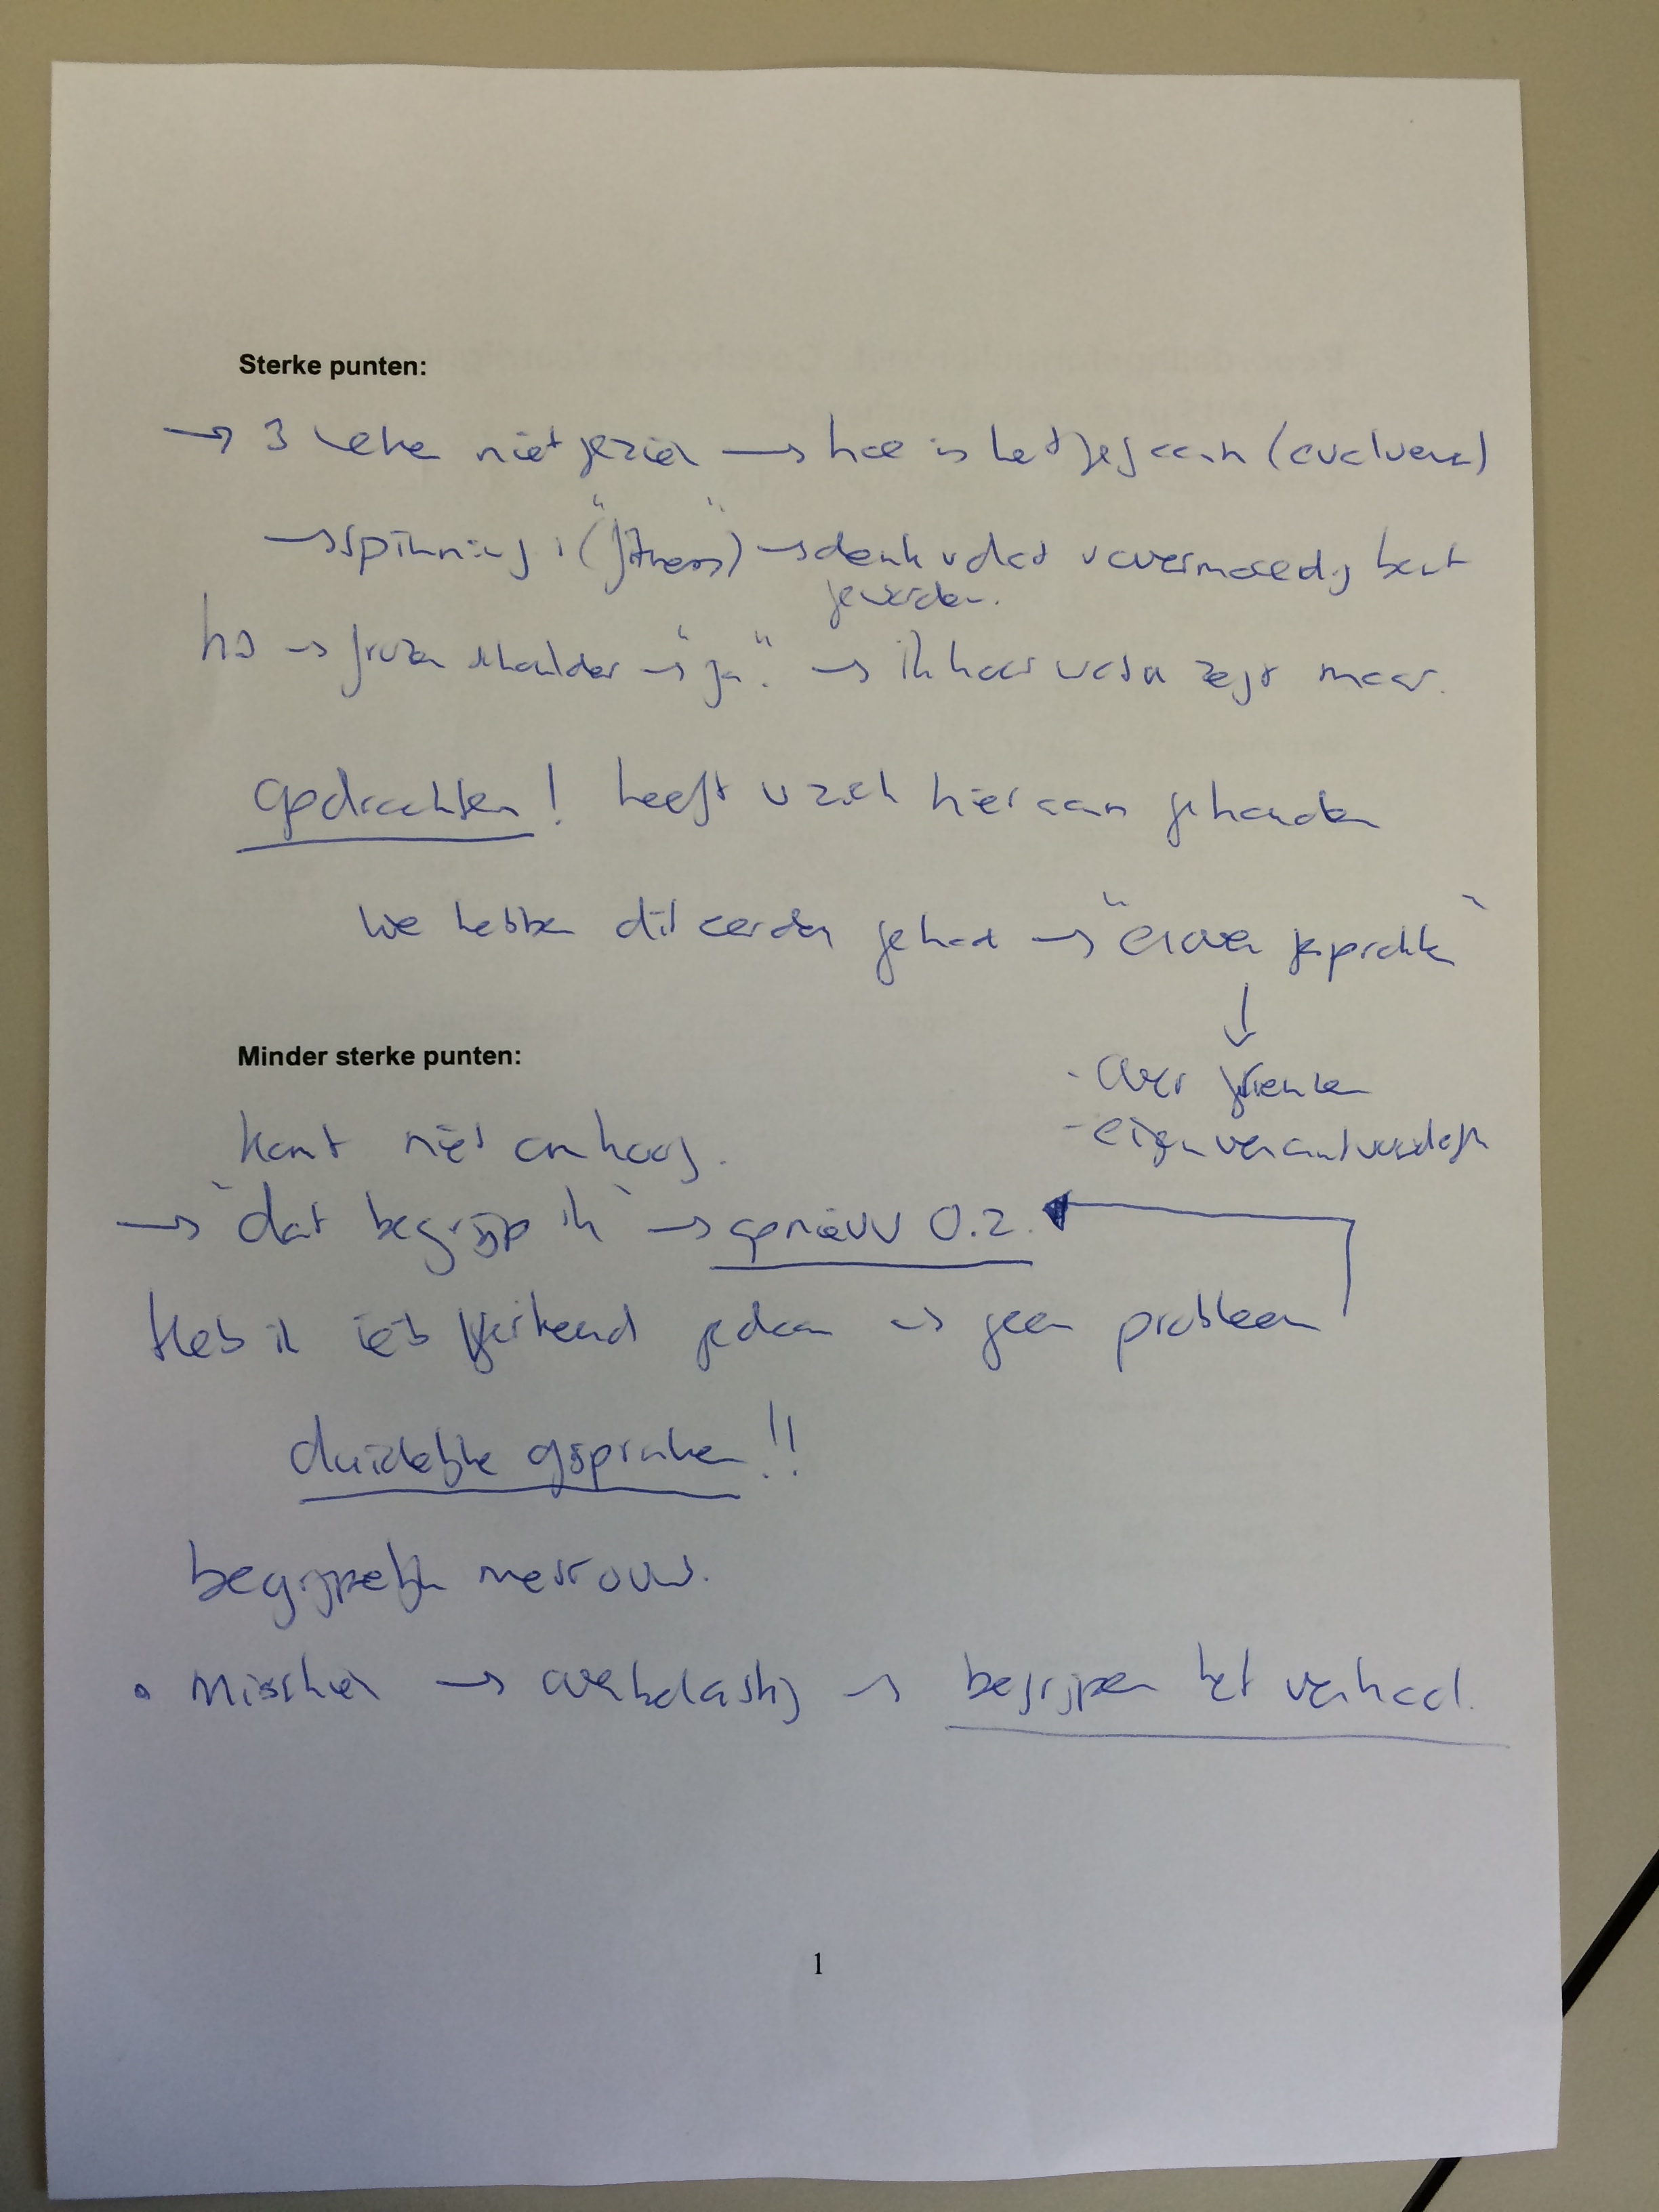 Sterke punten:
→ 3 weken niet gezien → hoe is het gegaan (evalueren)
→ spinning ("fitness") → denk u dat u overmoedig bent
geworden.
→ frozen shoulder → "ja". → ik hoor wat u zegt maar.
opdrachten! heeft u zich hier aan gehouden
We hebben dit eerder gehad → "erover gesproken"
↓
Minder sterke punten:
- over grenzen
- eigen verantwoordelijk
komt niet omhoog.
→ "dat begrijp ik" → opnieuw O.2.
Heb ik iets verkeerd gedaan → geen probleem
duidelijke afspraken!!
begrijpelijk mevrouw.
• Misschien → overbelasting → begrijpen het verhaal.
1